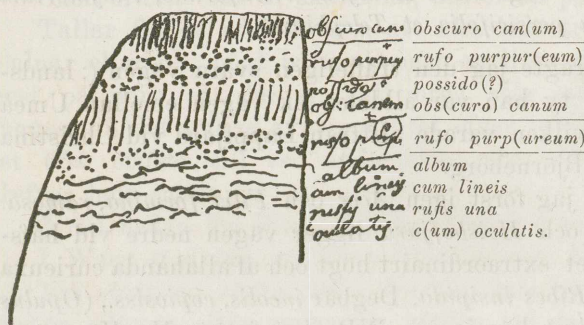 obscuro cano
obscuro can(um)
rufo purpur
rufo purpur(eum)
possido
possido(?)
obs. canum
obs(curo) canum
rufo purp
rufo purp(ureum)
album
album
cum lineis
cum lineis
rufis una
rufis una
c oculatis
c(um) oculatis.